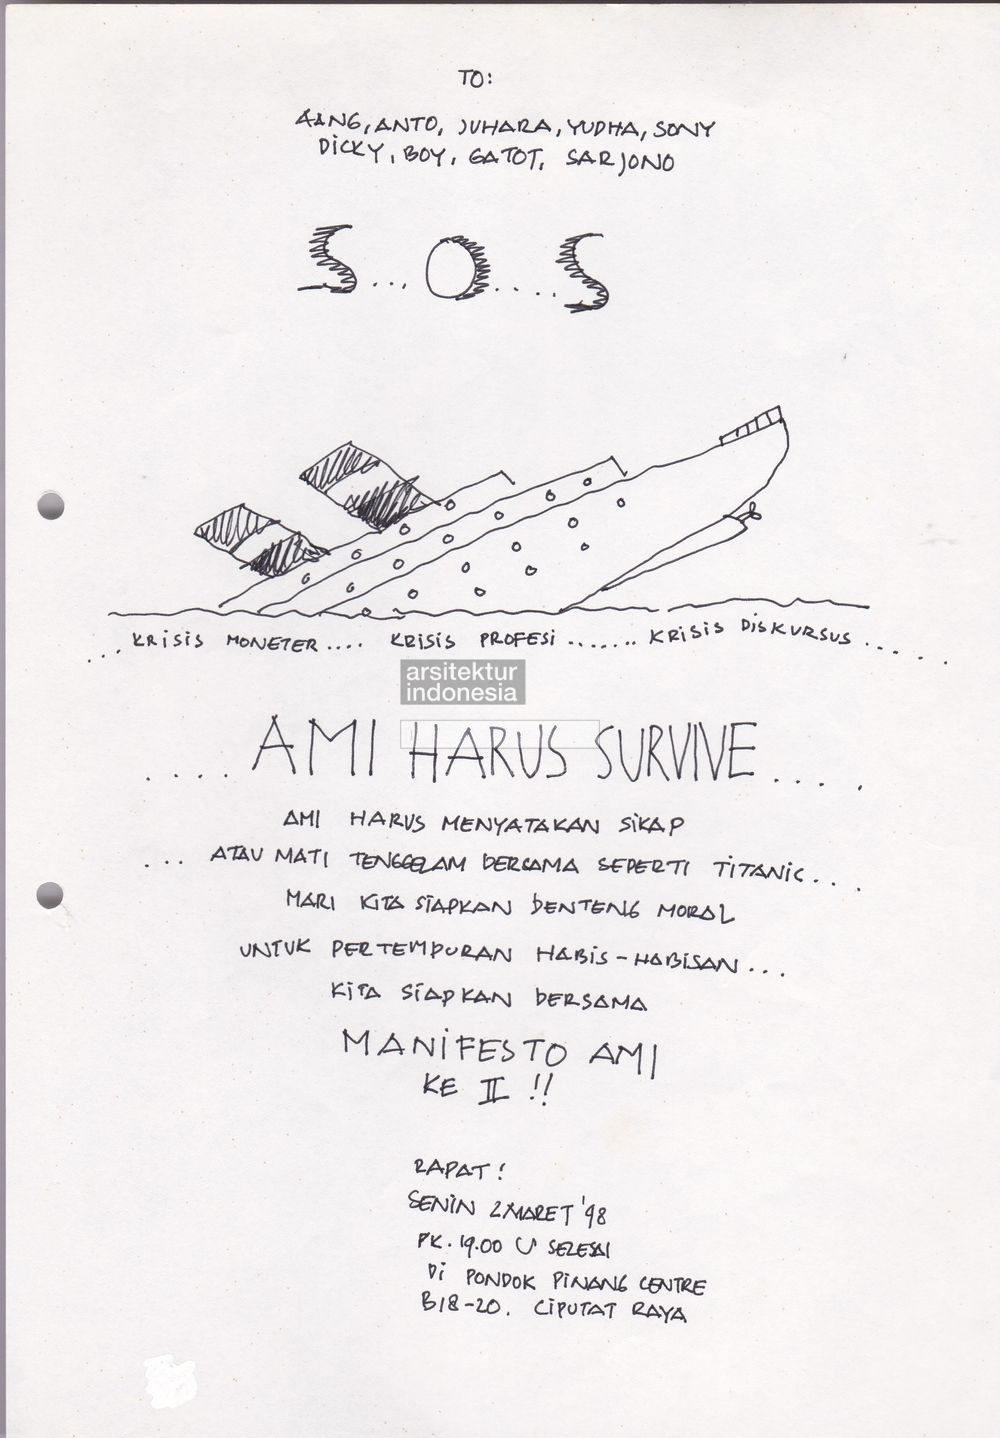 TO:
AANG, ANTO, JUHARA, YUDHA, SONY
DICKY, BOY, GATOT, SARJONO
S...O....S
...KRISIS MONETER.... KRISIS PROFESI ....... KRISIS DISKURSUS......
arsitektur
indonesia
....AMI HARUS SURVIVE.....
AMI HARUS MENYATAKAN SIKAP
... ATAU MATI TENGGELAM BERSAMA SEPERTI TITANIC....
MARI KITA SIAPKAN BENTENG MORAL
UNTUK PERTEMPURAN HABIS-HABISAN...
KITA SIAPKAN BERSAMA
MANIFESTO AMI
KE II !!
RAPAT!
SENIN 2 MARET '98
PK. 19.00 SELESAI
DI PONDOK PINANG CENTRE
B18-20. CIPUTAT RAYA